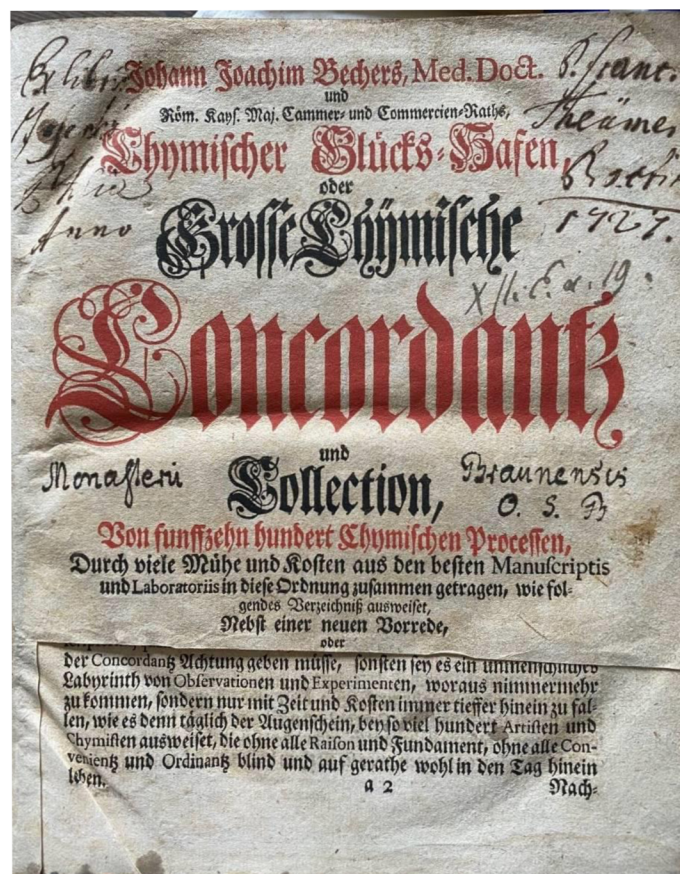 Ex libris
Anno
P. Franc.
1727.
Johann Joachim Bechers, Med. Doct.
und
Röm. Kays. Maj. Cammer- und Commercien-Raths,
Chymischer Glücks-Hafen,
oder
Grosse Chÿmische
Concordantz
und
Monasterii
Collection,
Braunensis
O. S. B
Von funffzehn hundert Chymischen Processen,
Durch viele Mühe und Kosten aus den besten Manuscriptis
und Laboratoriis in diese Ordnung zusammen getragen, wie fol-
gendes Verzeichniß ausweiset,
Nebst einer neuen Vorrede,
oder
der Concordantz Achtung geben müsse, sonsten sey es ein unmenschliches
Labyrinth von Observationen und Experimenten, woraus nimmermehr
zu kommen, sondern nur mit Zeit und Kosten immer tieffer hinein zu fal-
len, wie es denn täglich der Augenschein, bey so viel hundert Artisten und
Chymisten ausweiset, die ohne alle Raison und Fundament, ohne alle Con-
venientz und Ordinantz blind und auf gerathe wohl in den Tag hinein
leben.
a 2
Nach-